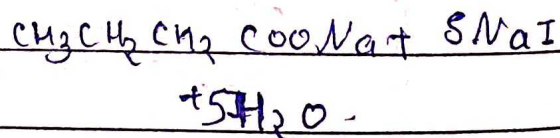 CH3CH2CH2COONa + 5NaI
+5H2O.